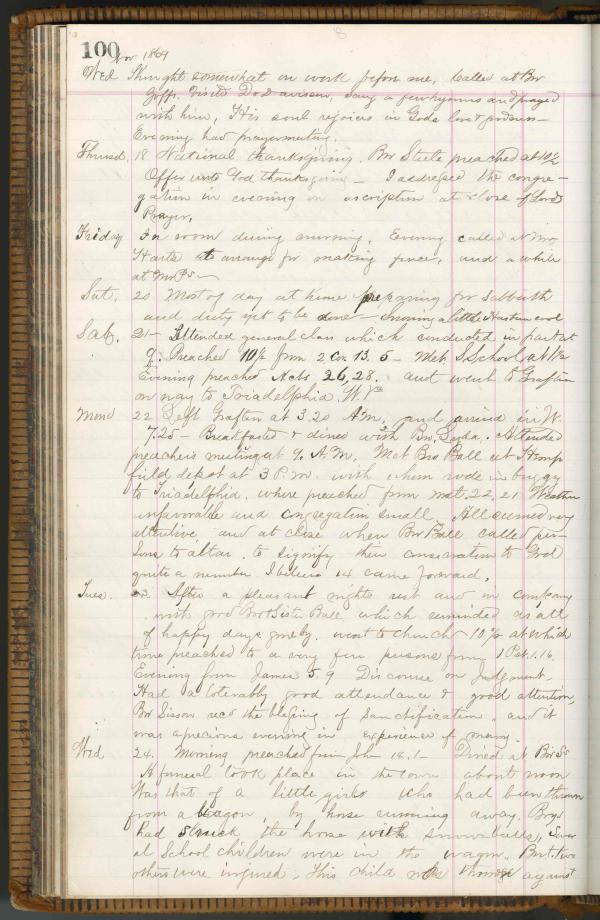 100 Nov 1869
Wed Thought somewhat on work before me, Called at Bro
Goffs. Visited Do D avison, sang a few hymns and prayed
with him, His soul rejoices in Gods love & goodness—
Evening had prayermeeting.
Thursd, 18 National thanksgiving. Bro Steele preached at 10½
Offer unto God thanksgiving — I addressed the congre-
gation in evening on ascription at close of Lords
Prayer.
Friday In room during morning. Evening called at Bro,
Harts to arrange for making fence, and a while
at
Sat. 20 Most of day at home preparing for Sabbath
and duty yet to be done — Snowing a little & cool
Sab. 21— Attended general class which conducted in part at
9. Preached 10½ from 2 Cor 13. 5 — Meth S. School, at
Evening preached Acts 26, 28. and went to Grafton
on way to Triadelphia. W. Va
Mond 22 Left Grafton at 3.20 A.M. and arrived in W.
7.25 — Breakfasted & dined with Bro, . Attended
preachers meeting at 9. A.M. Met Bro Ball at Hemp
field depot at 3 P.m. with whom rode in buggy
to Triadelphia. where preached from Mat, 22, 21 Weather
unfavorable and congregation small, All seemed very
attentive, and at close when Bro Ball called per-
sons to altar. to signify their consecration to God
quite a number I believe 14 came forward.
Tues. 23. After a pleasant nights rest and in company
with good Bro & Sister Ball which reminded us all
of happy days gone by. went to church 10½ at which
time preached to a very few persons from 1 Pet. 1. 16.
Evening from James 5. 9 Discourse on Judgment.
Had a tolerably good attendance & good attention,
Bro Sisson recd the blessing of sanctification. and it
was a precious evening in experience of many.
Wed 24. Morning preached from John 14. 1— Dined at Bro Ss
A funeral took place in the town about noon
Was that of a little girls who had been thrown
from a wagon, by horse running away. Boys
had struck the horse with snowballs, Sever
al School children were in the wagon. But two
others were injured. This child was thrown against